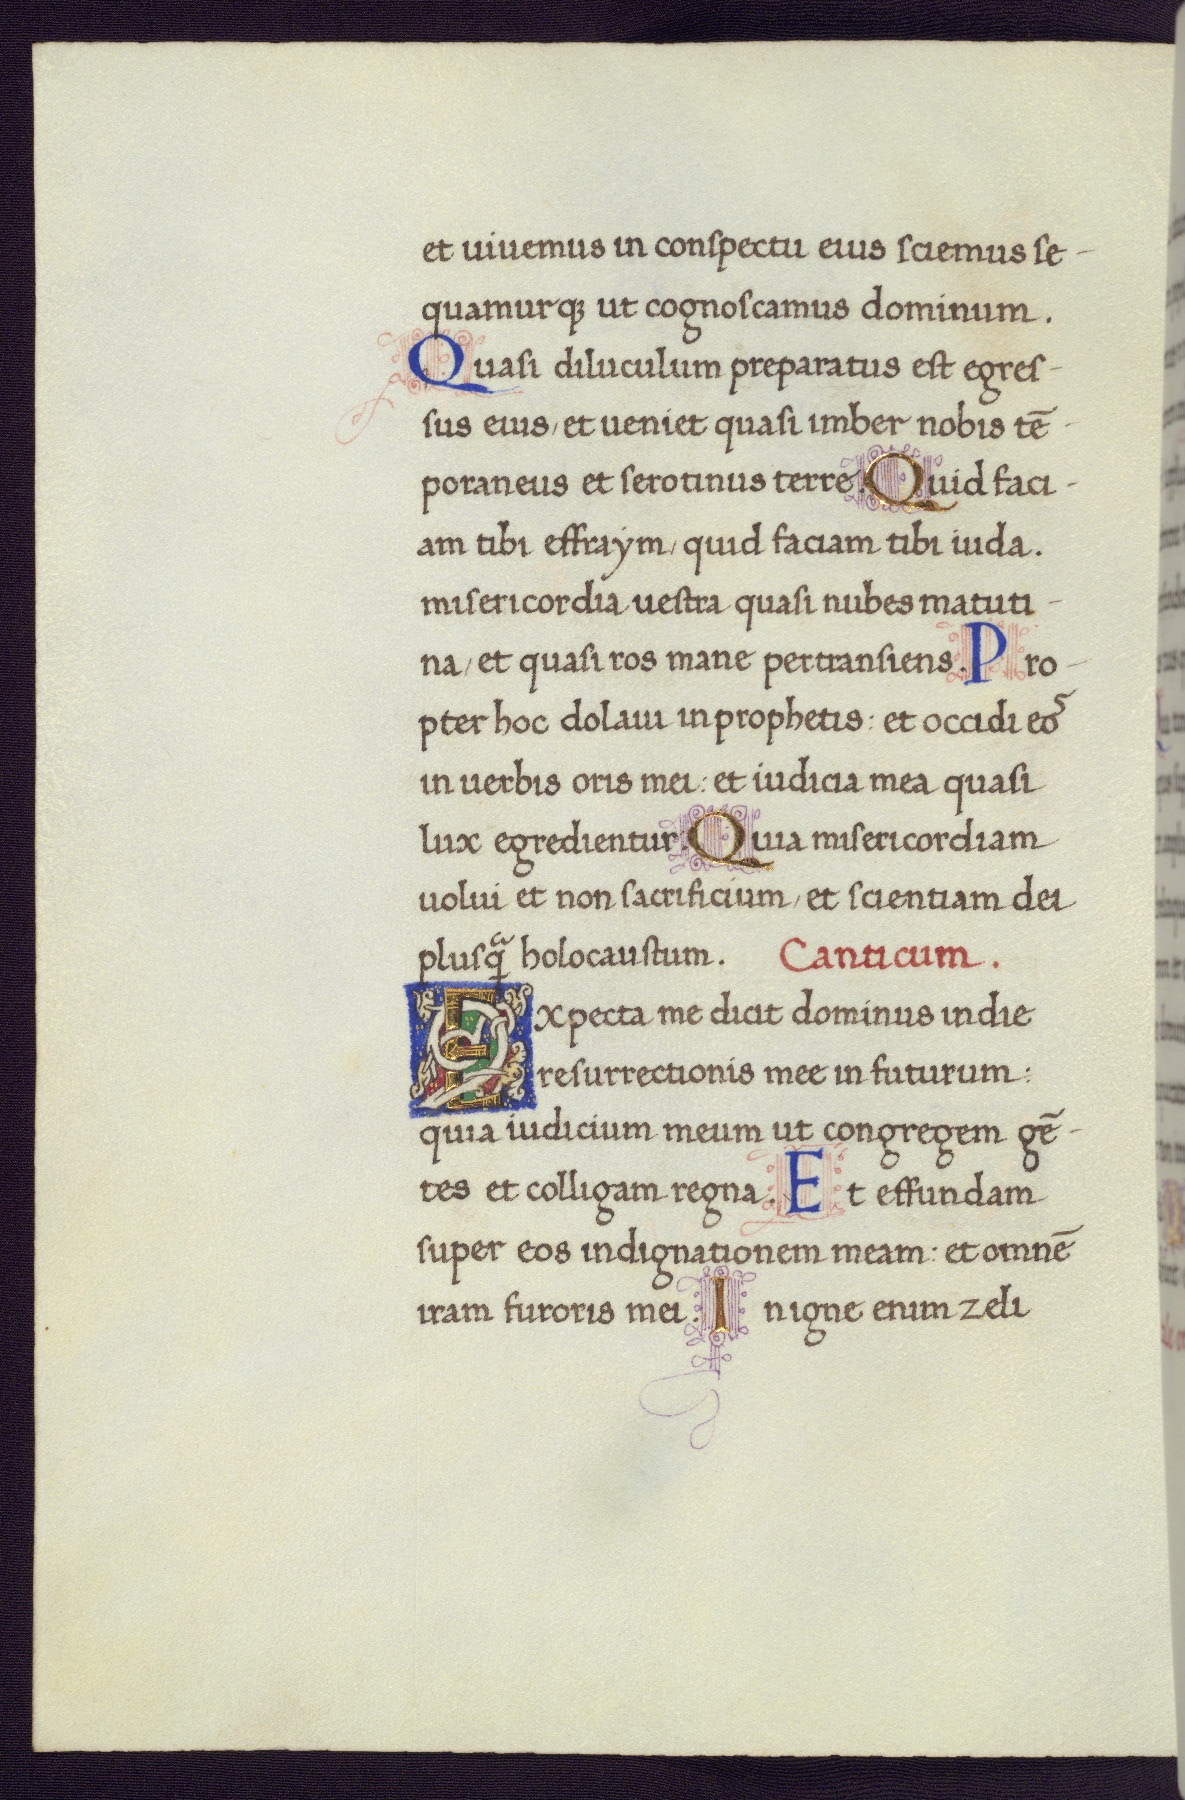 et uiuemus in conspectu eius sciemus se-
quamurq; ut cognoscamus dominum.
Quasi diluculum preparatus est egres-
sus eius, et ueniet quasi imber nobis tē-
poraneus et serotinus terre. Quid faci-
am tibi effraym, quid faciam tibi iuda.
misericordia uestra quasi nubes matuti-
na, et quasi ros mane pertransiens. Pro-
pter hoc dolaui in prophetis: et occidi eos
in uerbis oris mei: et iudicia mea quasi
lux egredientur. Quia misericordiam
uolui et non sacrificium, et scientiam dei
plusqᵃ̄ holocaustum. Canticum.
Expecta me dicit dominus in die
resurrectionis mee in futurum:
quia iudicium meum ut congregem gē-
tes et colligam regna. Et effundam
super eos indignationem meam: et omnē
iram furoris mei. In igne enim zeli